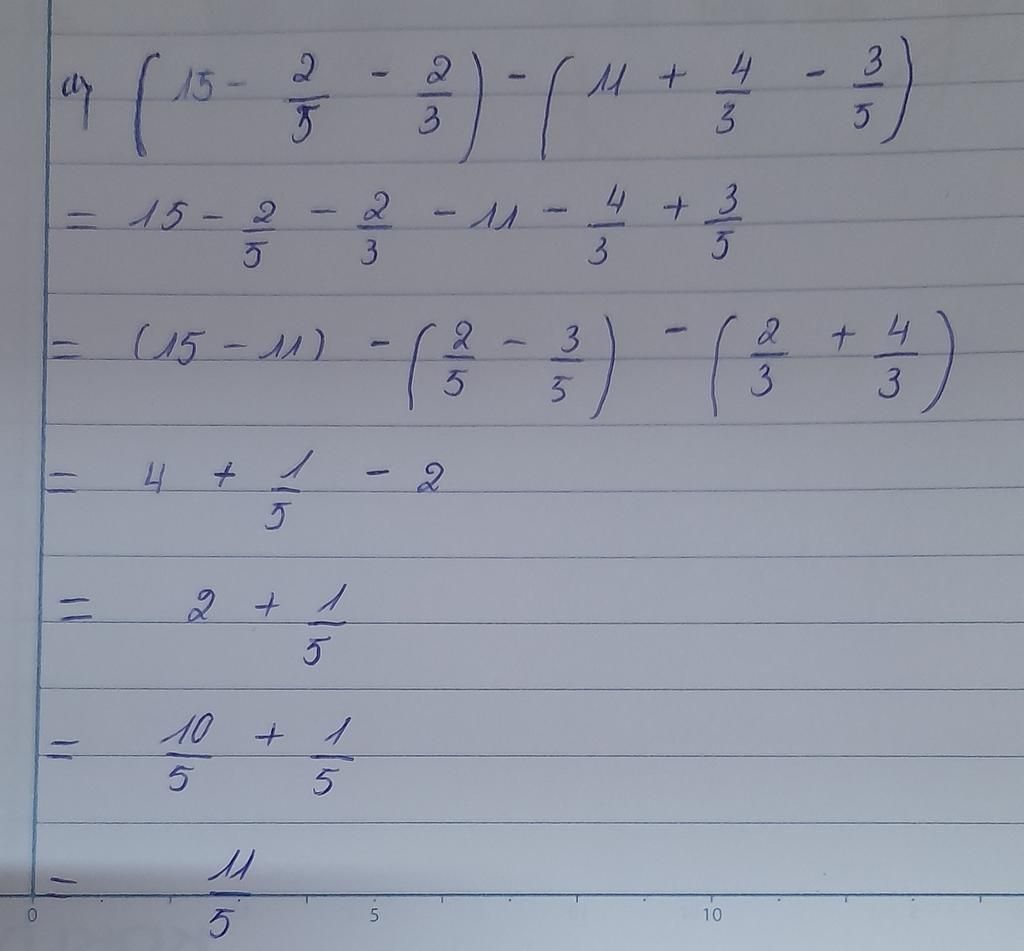 a) (15 - 2/5 - 2/3) - (11 + 4/3 - 3/5)
= 15 - 2/5 - 2/3 - 11 - 4/3 + 3/5
= (15 - 11) - (2/5 - 3/5) - (2/3 + 4/3)
= 4 + 1/5 - 2
= 2 + 1/5
= 10/5 + 1/5
= 11/5
0 5 10